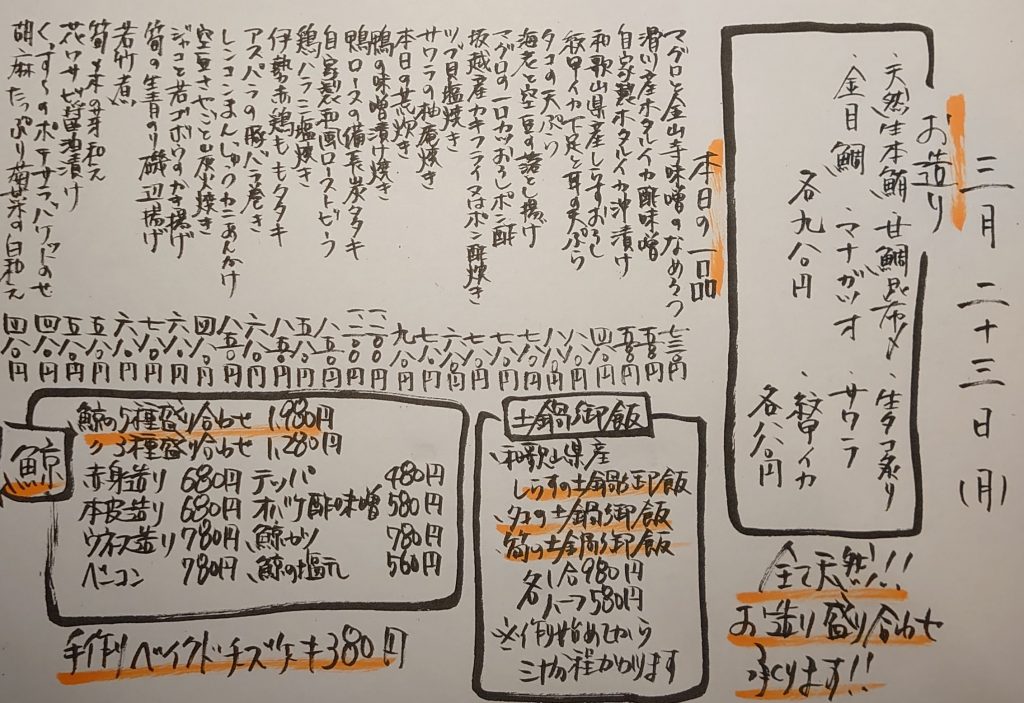 三月二十三日（月）
お造り
・天然生本鮪 ・甘鯛昆布〆 ・生タコ柔り
・金目鯛 ・マナガツオ ・サワラ ・紋甲イカ
各九八〇円
各八八〇円
全て天然!!
お造り盛り合わせ
承ります!!
本日の一品
マグロと金山寺味噌のなめろう 七三〇円
滑川産ホタルイカ酢味噌
自家製ホタルイカ沖漬け
和歌山県産しらすおろし
紋甲イカ下足と耳の天ぷら
タコの天ぷら
海老と空豆の落とし揚げ
マグロの一口カツおろしポン酢
坂越産カキフライ又はポン酢焼き
ツブ貝塩焼き
サワラの柚庵焼き
本日の荒炊き 九八〇円
鴨の味噌漬け焼き
鴨ロースの備長炭タタキ
自家製和風ローストビーフ
鶏ハラミ塩焼き
伊勢赤鶏ももタタキ
アスパラの豚バラ巻き
レンコンまんじゅうカニあんかけ
空豆さやごと炭火焼き
ジャコと若ゴボウのかき揚げ
筍の生青のり磯辺揚げ
若竹煮
筍木の芽和え
花ワサビ醤油漬け
くんすものポテサラバケットのせ
胡麻たっぷり菊菜の白和え 四八〇円
土鍋御飯
和歌山県産
しらすの土鍋御飯
タコの土鍋御飯
筍の土鍋御飯
各1合980円
ハーフ580円
※作り始めてから
三十分程かかります
鯨
鯨の5種盛り合わせ 1,980円
〃3種盛り合わせ 1,280円
赤身造り 680円 テッパ 480円
本皮造り 680円 オバケ酢味噌 580円
ウネス造り 780円 鯨カツ 780円
ベーコン 780円 鯨の塩元 560円
手作りベイクドチーズケーキ380円